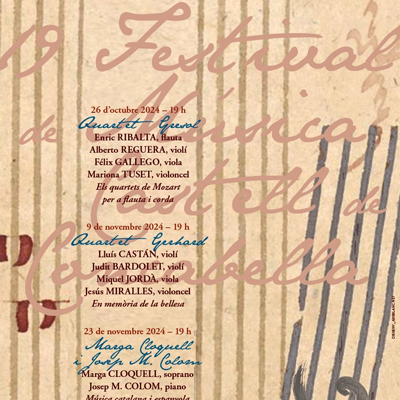 19 Festival
de Música
Castell de
Concabella
26 d'octubre 2024 – 19 h
Quartet Gresol
Enric RIBALTA, flauta
Alberto REGUERA, violí
Félix GALLEGO, viola
Mariona TUSET, violoncel
Els quartets de Mozart
per a flauta i corda
9 de novembre 2024 – 19 h
Quartet Gerhard
Lluís CASTÁN, violí
Judit BARDOLET, violí
Miquel JORDÀ, viola
Jesús MIRALLES, violoncel
En memòria de la bellesa
23 de novembre 2024 – 19 h
Marga Cloquell
i Josep M. Colom
Marga CLOQUELL, soprano
Josep M. COLOM, piano
Música catalana i espanyola